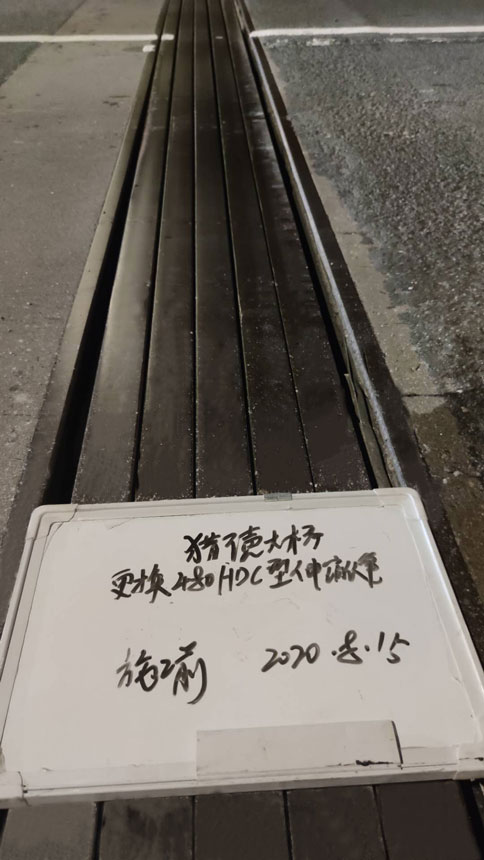 猎德大桥
更换480HDC型伸缩缝
施工前 2020.8.15